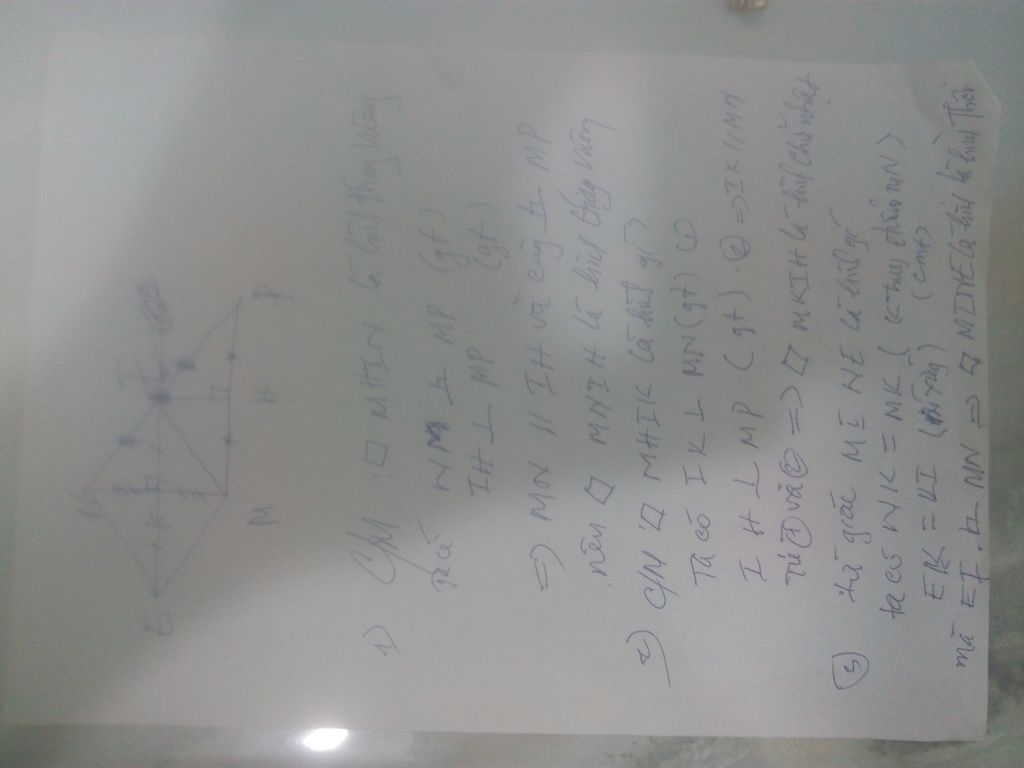 N
E K I
M H P
1) C/M : □ MHIN là hình thang vuông
Ta có NM ⊥ MP (gt)
IH ⊥ MP (gt)
=> MN // IH và cùng ⊥ MP
nên □ MNIH là hình thang vuông
2) C/M □ MHIK là hình gì
Ta có IK ⊥ MN (gt) ①
IH ⊥ MP (gt) ②
Từ ① và ② => □ MKIH là hình chữ nhật
③ tứ giác MINE là hình gì
ta có NK = MK ( K trung điểm MN)
EK = KI (cmt)
mà EI ⊥ MN => □ MINE là hình thoi